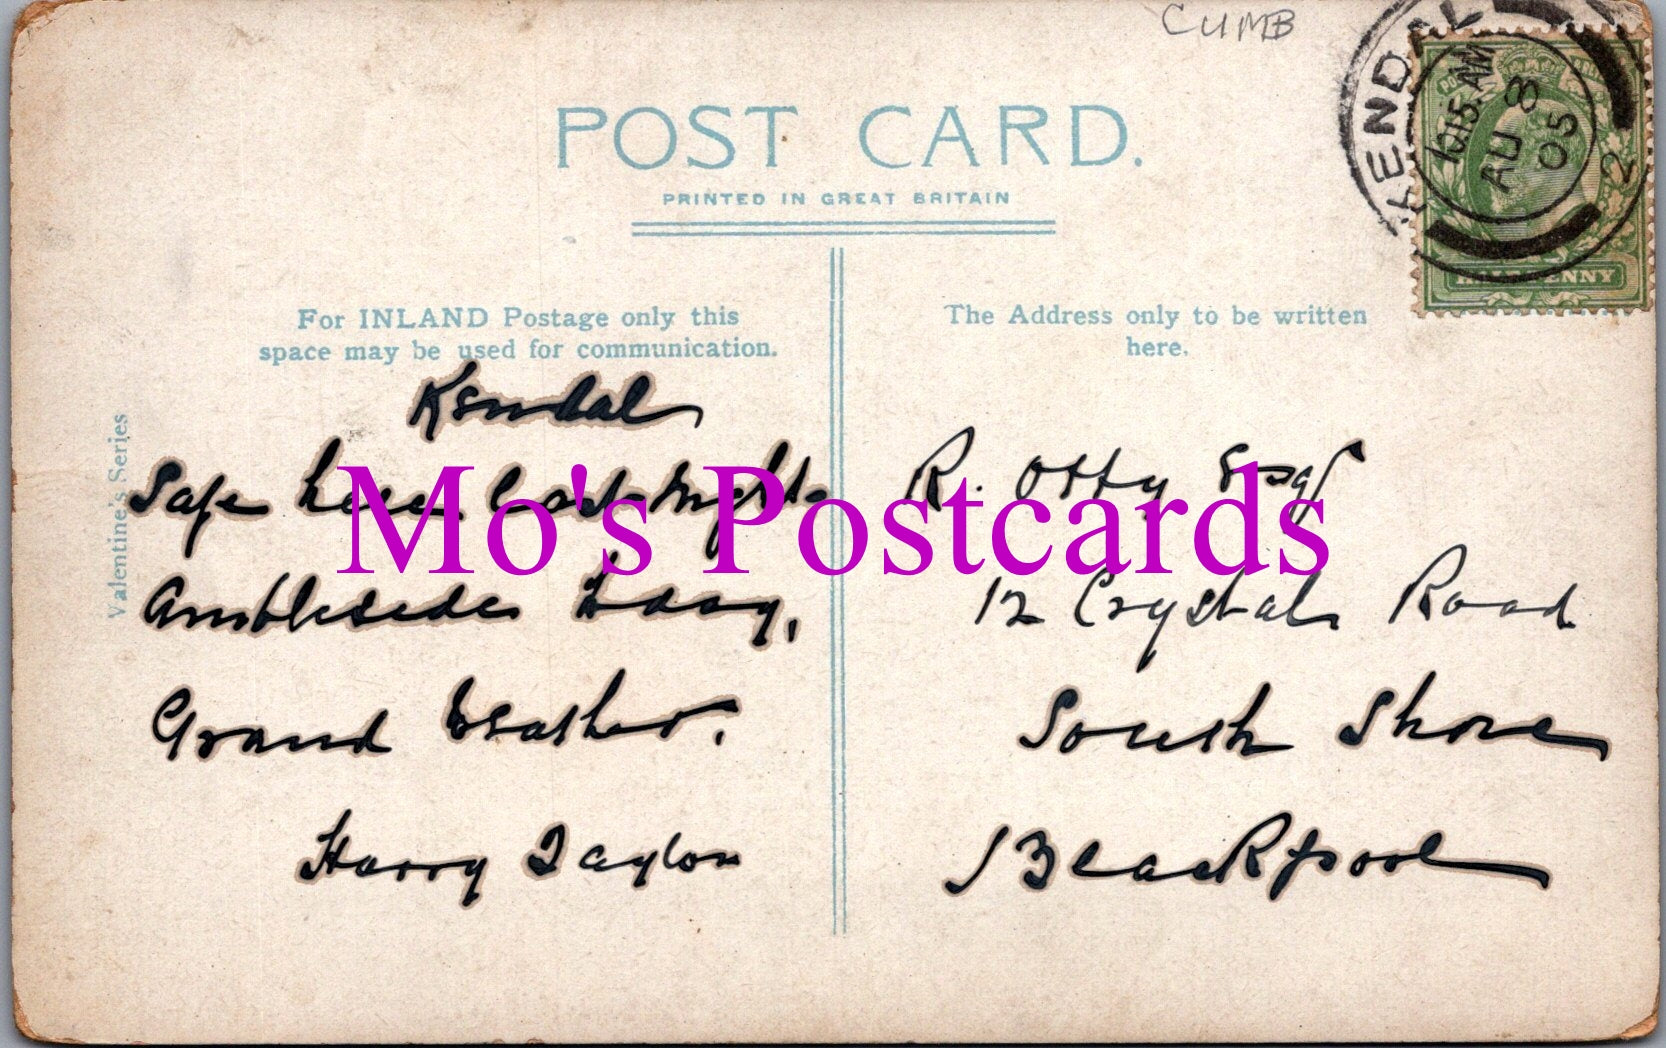 CUMB
POST CARD.
PRINTED IN GREAT BRITAIN
KENDAL
10.15. AM
AU 8
05
2
HALFPENNY
For INLAND Postage only this
space may be used for communication.
The Address only to be written
here.
Valentine's Series
Kendal
Safe here last night
Ambleside today,
Grand weather.
Harry Taylor
R. Otty Esq
12 Crystal Road
South Shore
Blackpool
Mo's Postcards